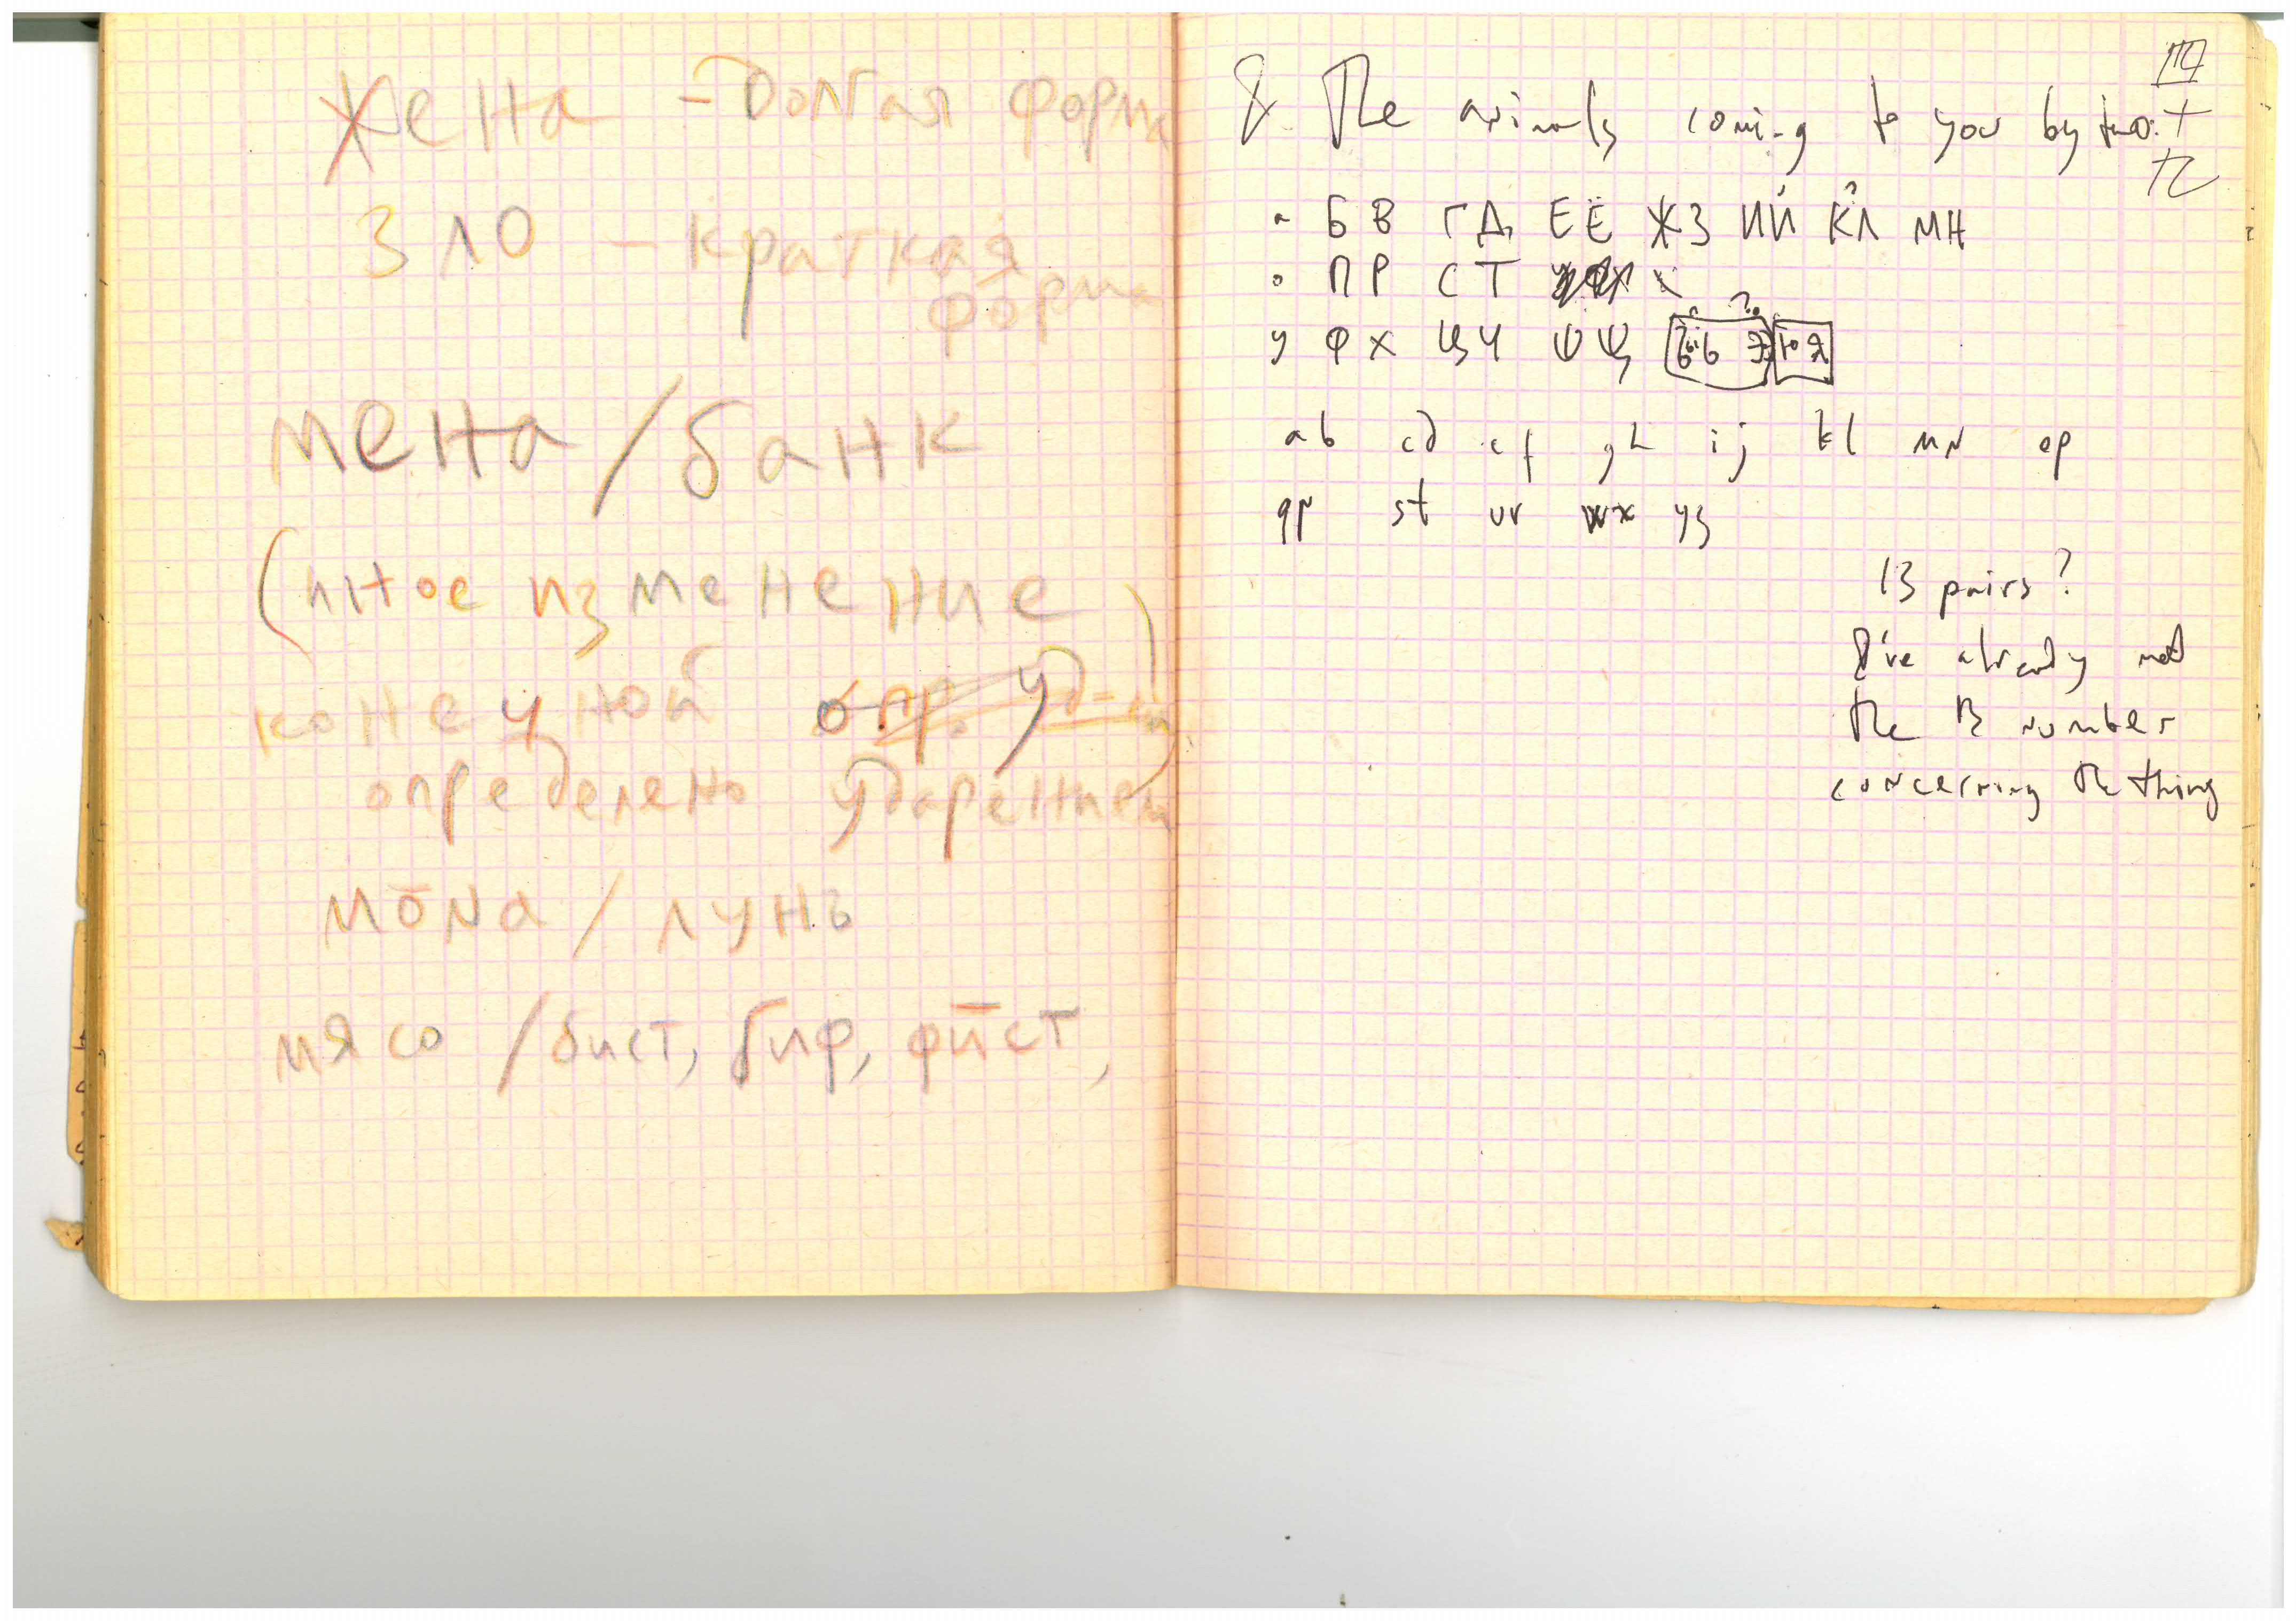 жена - долгая форма
зло - краткая
форма
мена / банк
(иное изменение
конечной опр. уд-ем)
определено ударением
мōна / лунь
мясо / бист, биф, фӣст,
8. The animals coming to you by two:
а Б В ГД ЕЁ ЖЗ ИЙ КЛ МН
о ПР СТ
у ФХ ЦЧ ШЩ ъыь Э ЮЯ
ab cd ef gh ij kl mn op
qr st uv wx yz
13 pairs?
I've already met
the 13 number
concerning the thing